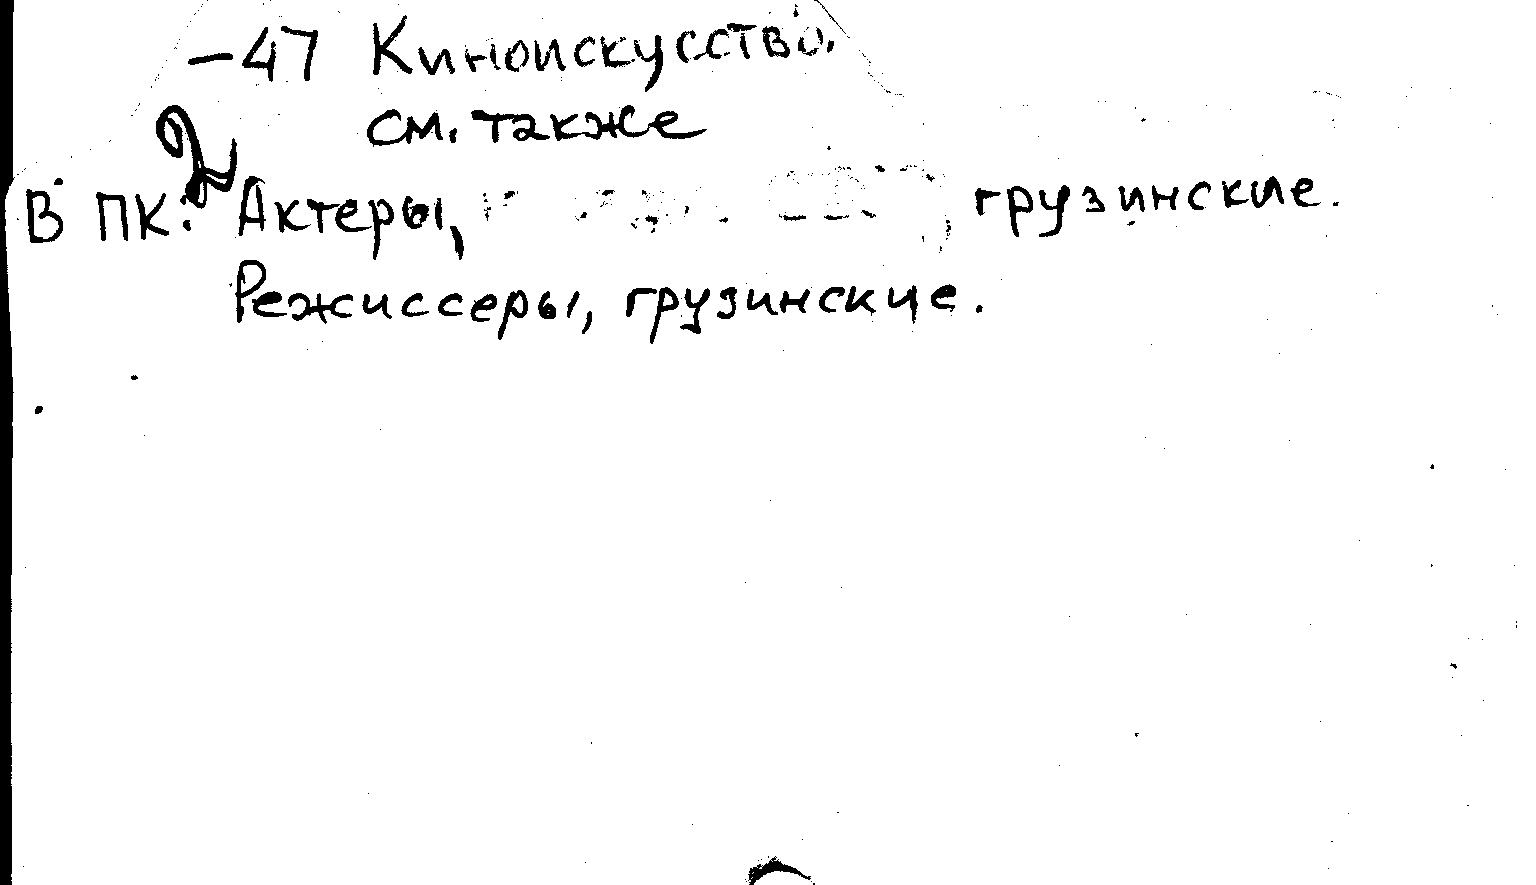 -47 Киноискусство.
см. также
В ПК: Актеры, грузинские.
Режиссеры, грузинские.